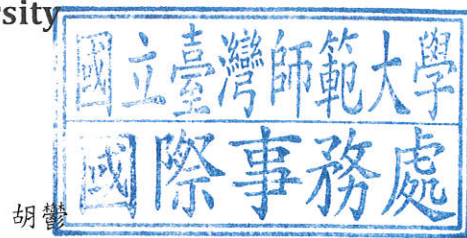 rsity
國立臺灣師範大學
國際事務處
胡